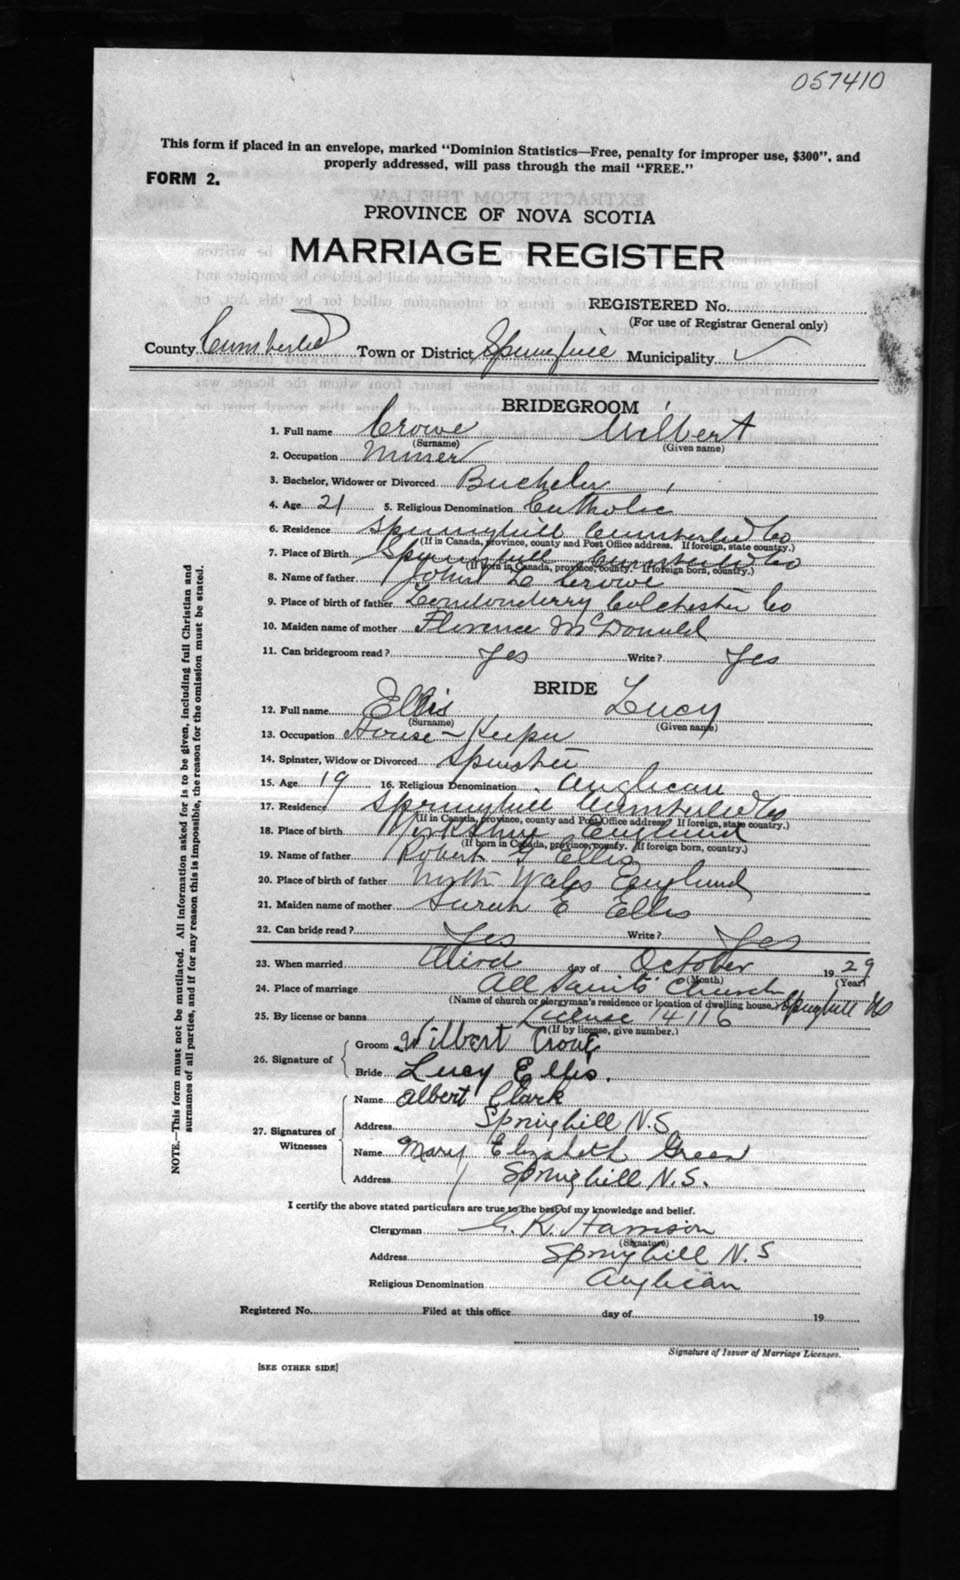 057410
This form if placed in an envelope, marked "Dominion Statistics—Free, penalty for improper use, $300", and
properly addressed, will pass through the mail "FREE."
FORM 2.
PROVINCE OF NOVA SCOTIA
MARRIAGE REGISTER
REGISTERED No.
(For use of Registrar General only)
County Cumberland Town or District Springhill Municipality
BRIDEGROOM
1. Full name Crowe Wilbert
(Surname) (Given name)
2. Occupation Miner
3. Bachelor, Widower or Divorced Bachelor
4. Age 21 5. Religious Denomination Catholic
6. Residence Springhill Cumberland Co
(If in Canada, province, county and Post Office address. If foreign, state country.)
7. Place of Birth Springhill Cumberland Co
(If born in Canada, province, county. If foreign born, country.)
8. Name of father John L Crowe
9. Place of birth of father Londonderry Colchester Co
10. Maiden name of mother Florence McDonald
11. Can bridegroom read? Yes Write? Yes
BRIDE
12. Full name Ellis Lucy
(Surname) (Given name)
13. Occupation House-Keeper
14. Spinster, Widow or Divorced Spinster
15. Age 19 16. Religious Denomination Anglican
17. Residence Springhill Cumberland Co
(If in Canada, province, county and Post Office address. If foreign, state country.)
18. Place of birth England
(If born in Canada, province, county. If foreign born, country.)
19. Name of father Robert Ellis
20. Place of birth of father North Wales England
21. Maiden name of mother Sarah E Ellis
22. Can bride read? Yes Write? Yes
23. When married day of October 1929
(Month) (Year)
24. Place of marriage All Saints Church Springhill NS
(Name of church or clergyman's residence or location of dwelling house.)
25. By license or banns License 14116
(If by license, give number.)
26. Signature of Groom Wilbert Crowe
Bride Lucy Ellis.
27. Signatures of Witnesses Name Albert Clark
Address Springhill N.S
Name Mary Elizabeth Green
Address Springhill N.S.
I certify the above stated particulars are true to the best of my knowledge and belief.
Clergyman G. R. Harrison
(Signature)
Address Springhill N.S
Religious Denomination Anglican
Registered No. Filed at this office day of 19
Signature of Issuer of Marriage Licenses.
[SEE OTHER SIDE]
NOTE.—This form must not be mutilated. All information asked for is to be given, including full Christian and
surnames of all parties, and if for any reason this is impossible, the reason for the omission must be stated.